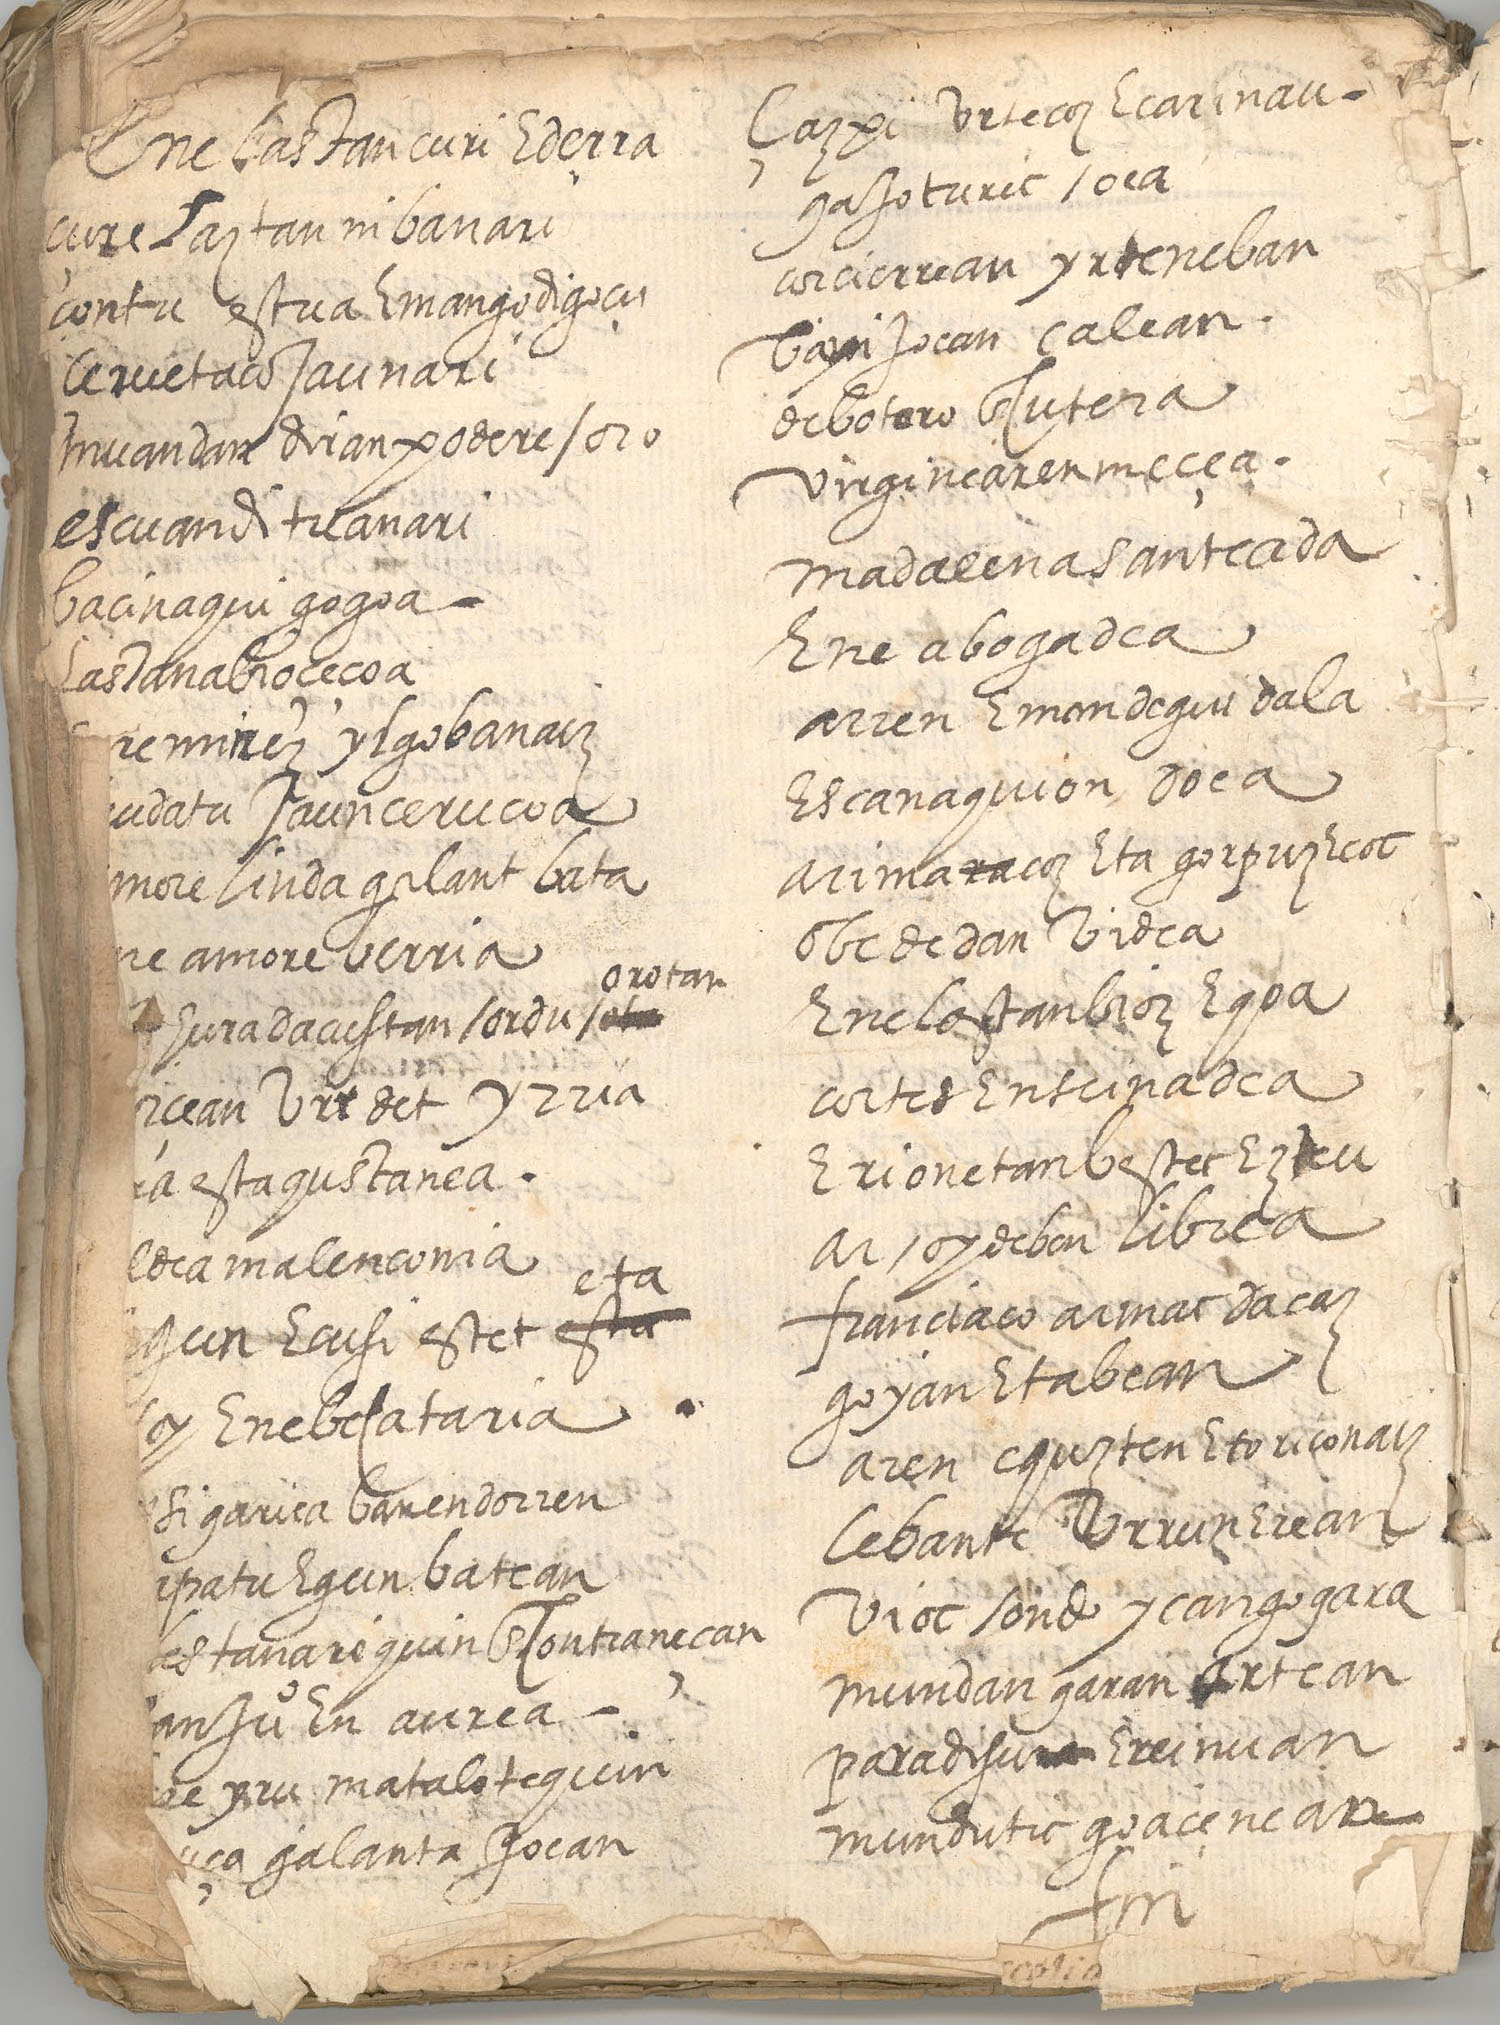 Ene lastan curi Ederra
çure laztan ni banari
contu estua Emangodigoçu
Ceruetaco Jaunari
munduan dirian podere soro
escuan dituanari
bacinaqui gogoa
lastana biocecoa
ylgobanaiz
Jaun cerucoa
more linda galant bata
ne amore verria
Eura dacustan sordu orotan
icean Urt det yrria
esta gustanea.
malenconia
Egun Ecusi estet eta
oy Ene belataria
garica baxendorren
Egun batean
lastanarequin Contranecan
San Juº En aurea
yru matalotequin
galanta Jocan
Cazpi Urtecoz Ecarinau
gaixoturic soea
corcierrean yrteneban
Jocan calean.
debotoro
virginearen meçea.
madalena santea da
Ene abogadea
arren Emondegui dala
Escanaquion doea
arimacoz Eta gorpuzecoc
obe dedan videa
Ene lastan bioz Egoa
cortes Enseinadea
Erionetan bestec Ezteu
ar soydeben librea
franciaco armac dacaz
goyan Eta bean
aren eguzten Etoriconaiz
lebante Urrunerean
Vioc sondo ycangogara
mundan garan artean
paradisu Ereinuan
mundutic goaçenean
fin